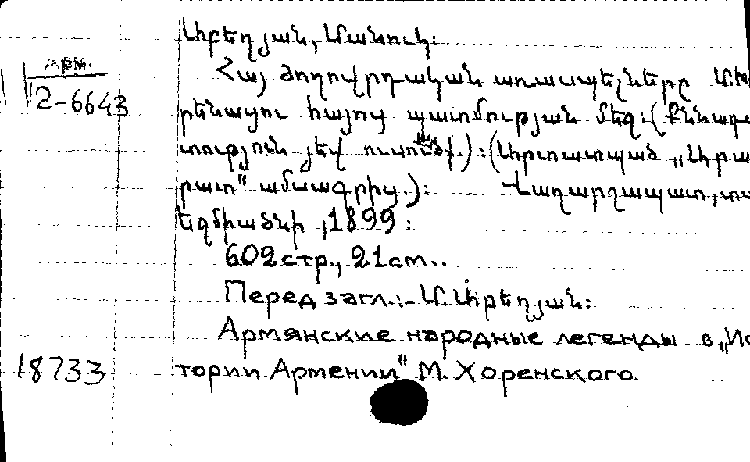 Աբեղյան, Մանուկ:
Հայ ժողովրդական առասպելները Մխ
րենացու հայոց պատմության մեջ: (Քննադա
տություն յեվ ուսումն.): (Արտատպած „Արա
րատ" ամսագրից.): Վաղարշապատ, տպ
2-6643
Եջմիածնի, 1899:
602 стр., 21 см..
Перед загл.:- Մ. Աբեղյան:
Армянские народные легенды в „Ис
18733
тории Армении" М. Хоренского.